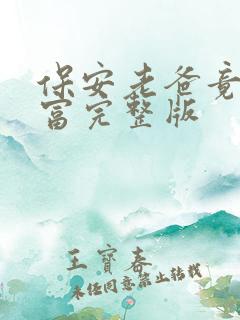 保安老爸竟
富完整版
王寶春
未经同意禁止转载